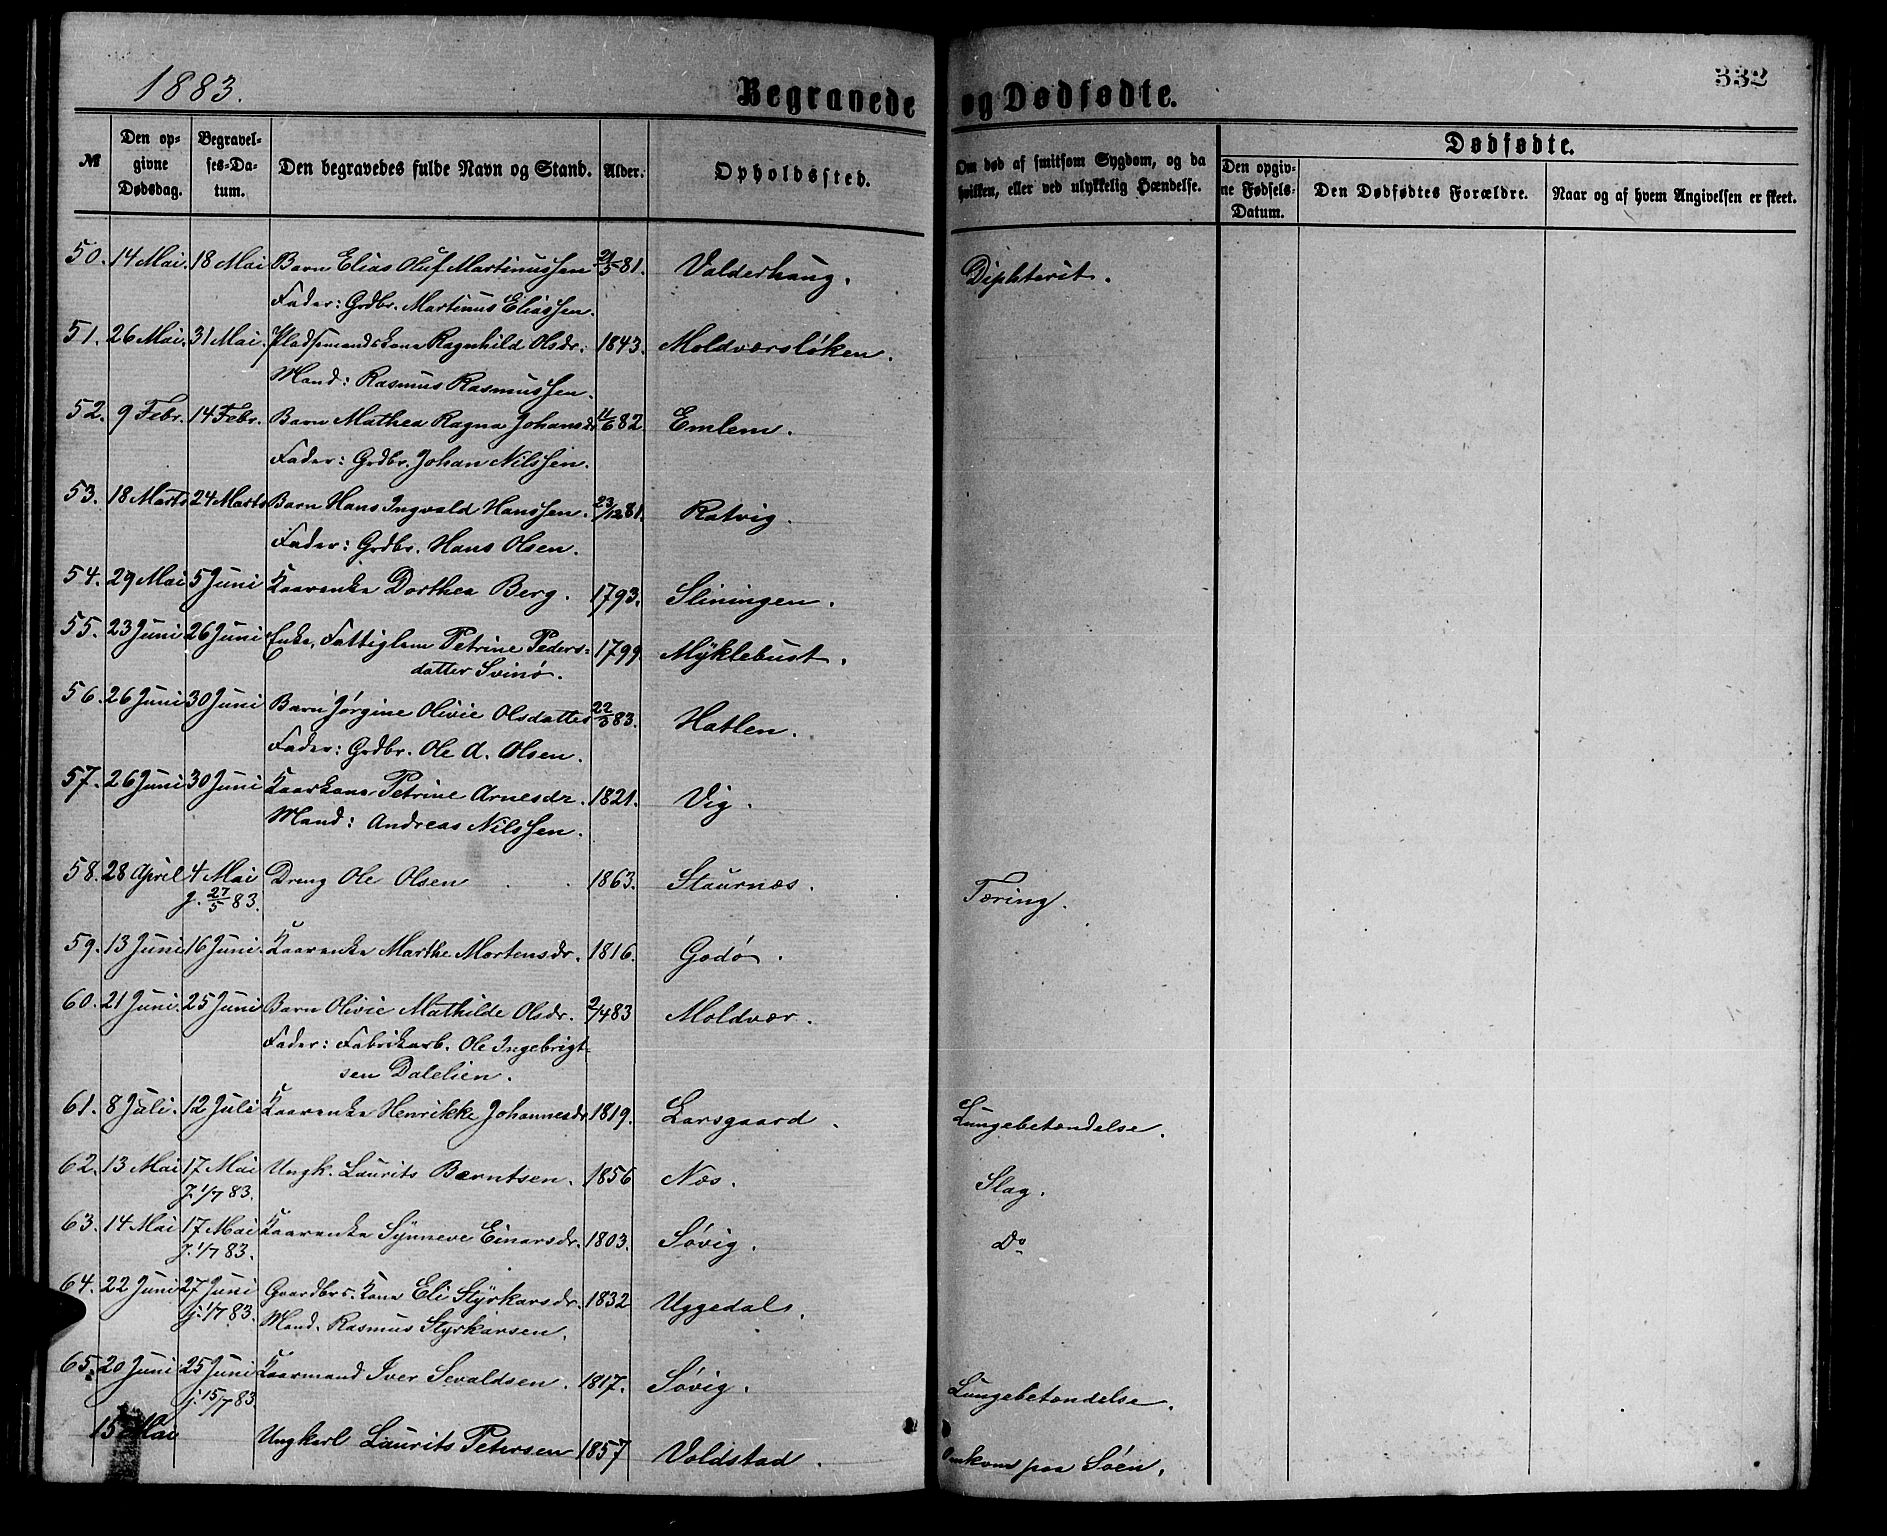 1883.
Begravede og Dødfødte.
332
№
Den op-
givne
Dødsdag.
Begravel-
ses-Da-
tum.
Den begravedes fulde Navn og Stand.
Alder.
Opholdssted.
Om død af smitsom Sygdom, og da
hvilken, eller ved ulykkelig Hændelse.
Dødfødte.
Den opgiv-
ne Fødsels-
Datum.
Den Dødfødtes Forældre.
Naar og af hvem Angivelsen er skeet.
50. 14 Mai. 18 Mai Barn Elias Oluf Martinussen 81. Valderhaug. Diphterit.
Fader: Grdbr. Martinus Eliassen.
51. 26 Mai. 31 Mai. Pladsemandskone Ragnhild Olsdr. 1843. Moldværsløken.
Mand: Rasmus Rasmussen.
52. 9 Febr. 14 Febr. Barn Mathea Ragna Johansdr 11/6 82 Emlem.
Fader: Grdbr. Johan Nilssen.
53. 18 Marts 24 Marts Barn Hans Ingvald Hanssen. 23/12 81. Ratvig.
Fader: Grdbr. Hans Olsen.
54. 29 Mai 5 Juni Kaarenke Dorthea Berg. 1793. Sliningen.
55. 23 Juni 26 Juni Enke, Fattiglem Petrine Peders- 1799. Myklebust.
datter Svinø.
56. 26 Juni 30 Juni Barn Jørgine Olivie Olsdatter 22/3 83. Hatlen.
Fader: Grdbr. Ole A. Olsen.
57. 26 Juni 30 Juni Kaarkone Petrine Arnesdr. 1821. Vig.
Mand: Andreas Nilssen.
58. 28 April 4 Mai Dreng Ole Olsen 1863. Staurnæs. Tæring.
j. 27/5 83.
59. 13 Juni 16 Juni. Kaarenke Marthe Mortensdr. 1816. Godø.
60. 21 Juni. 25 Juni Barn Olivie Mathilde Olsdr. 2/4 83 Moldvær.
Fader: Fabrikarb. Ole Ingebrigt-
sen Dalelien.
61. 8 Juli. 12 Juli Kaarenke Henrikke Johannesdr 1819. Larsgaard. Lungebetændelse.
62. 13 Mai 17 Mai Ungk. Laurits Berntsen. 1856 Næs. Slag.
J. 1/7 83.
63. 14 Mai 17 Mai Kaarenke Synneve Einarsdr. 1803. Søvig. Do
J. 1/7 83.
64. 22 Juni 27 Juni Gaardbrs. Kone Eli Styrkarsdr. 1832 Uggedal.
j. 1/7 83. Mand. Rasmus Styrkarsen.
65. 20 Juni 25 Juni Kaarmand Iver Sevaldsen. 1817. Søvig. Lungebetændelse.
j. 15/7 83
15 Mai Ungkarl Laurits Petersen 1857 Voldstad. Omkom paa Søen.